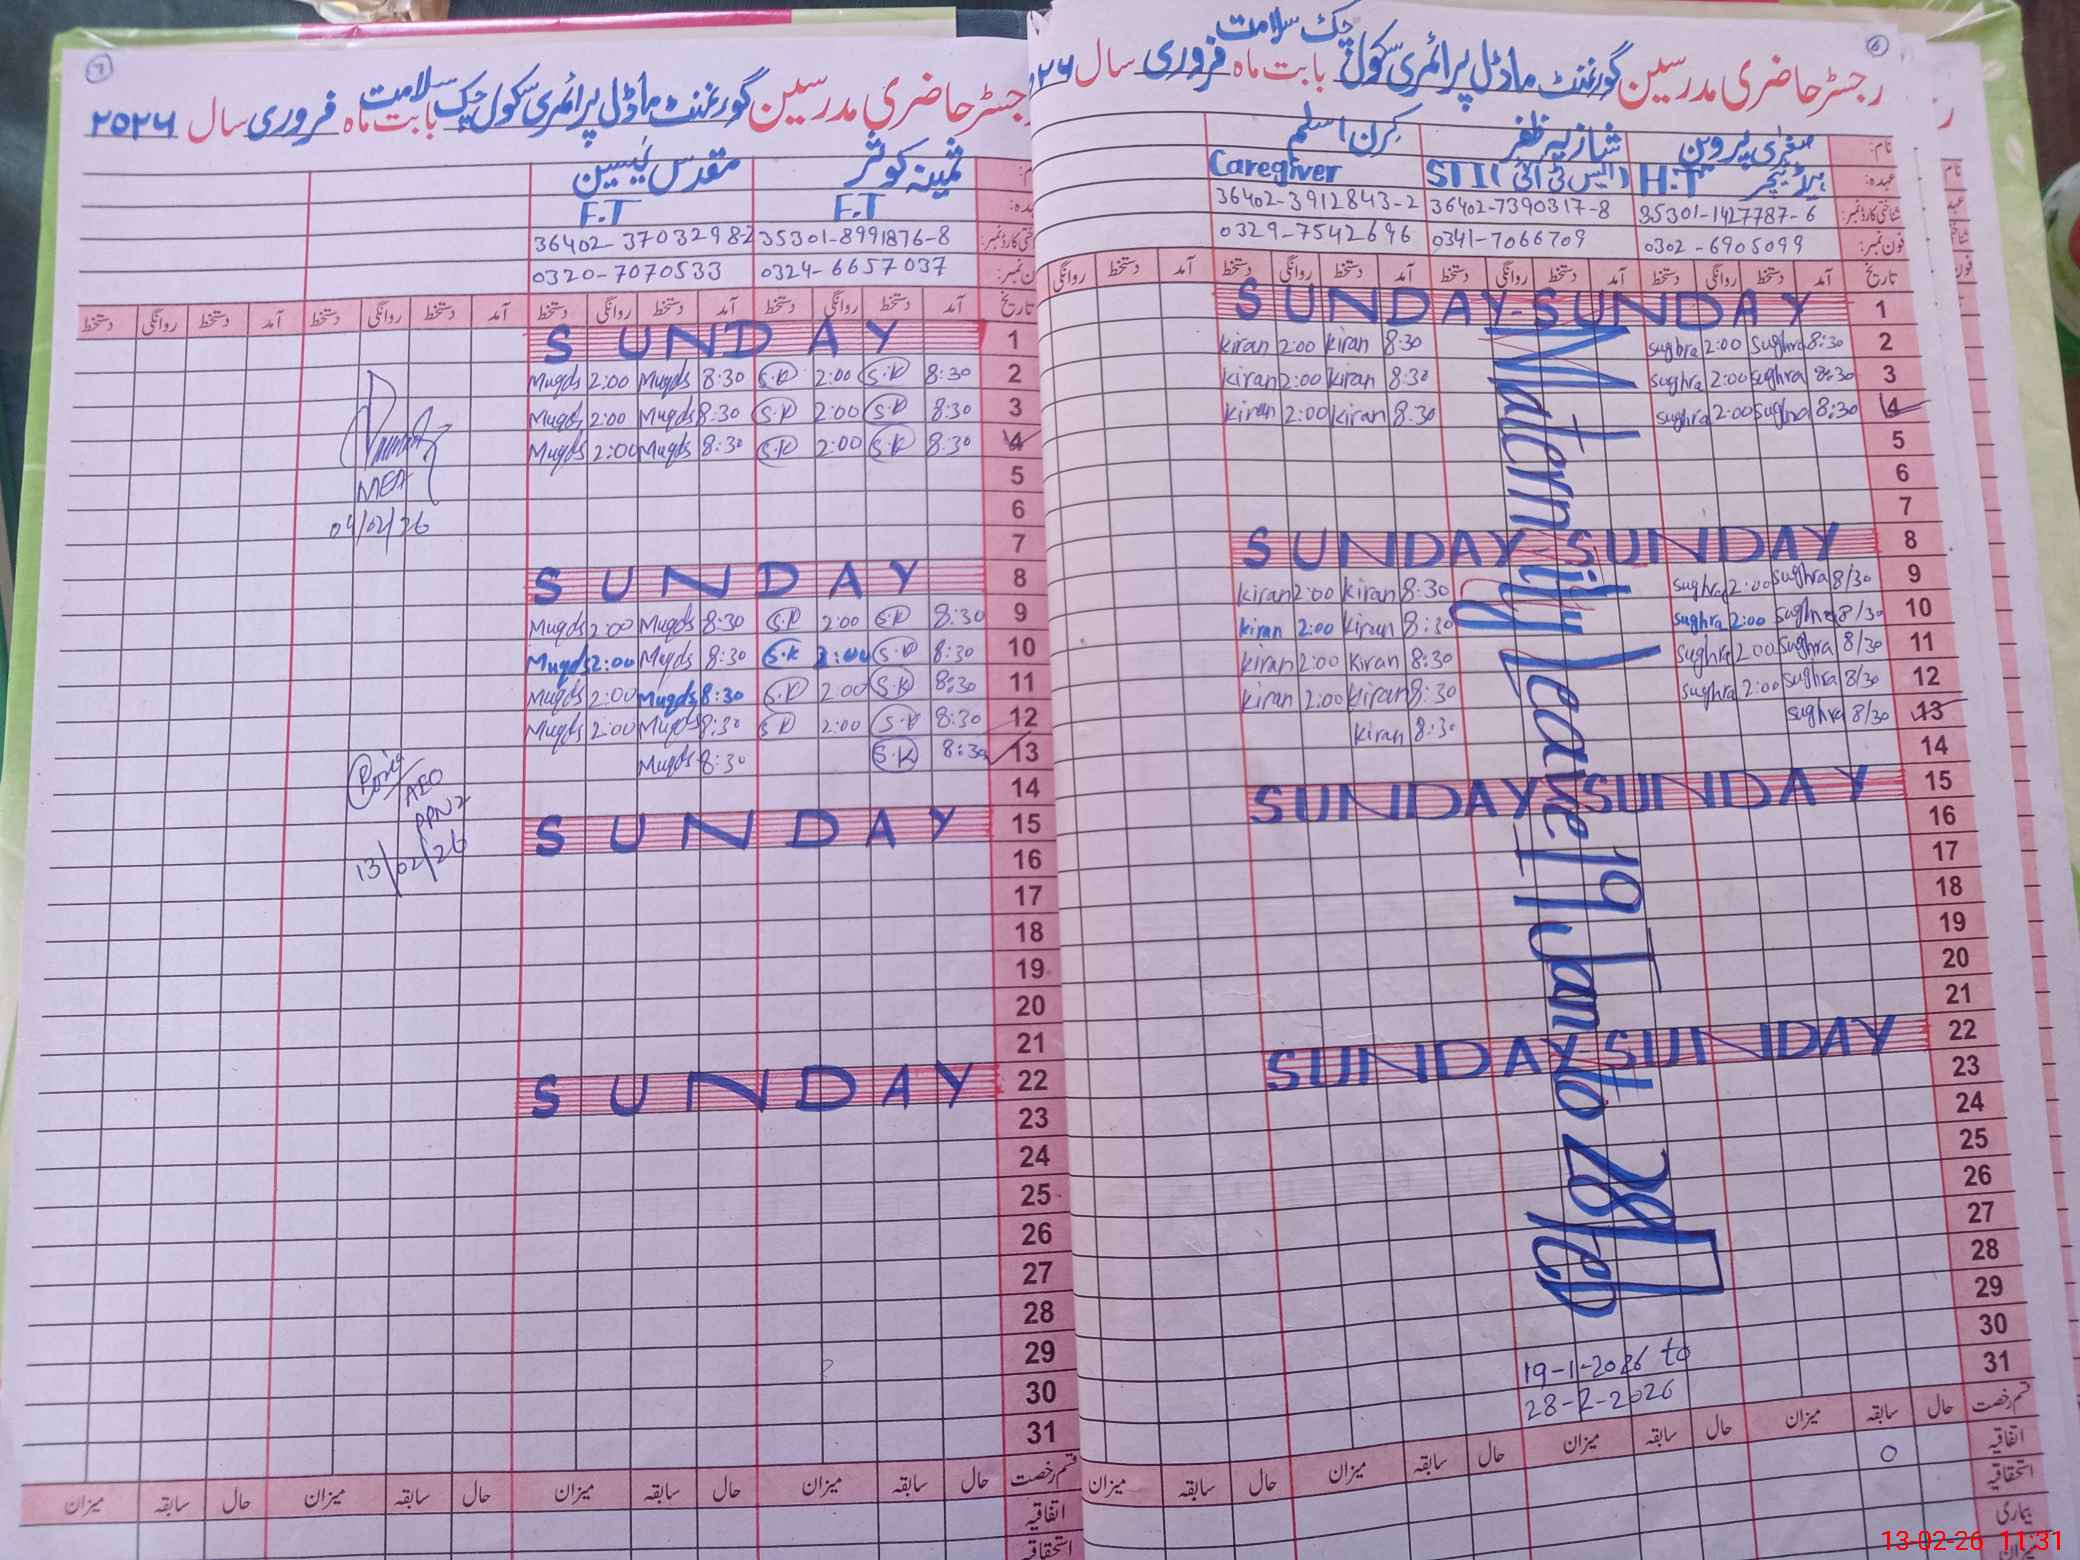 رجسٹر حاضری مدرسین گورنمنٹ ماڈل پرائمری سکول چک سلامت بابت ماہ فروری سال
نام: صغریٰ پروین شازیہ ظفر کرن اسلم
عہدہ: ہیڈ ٹیچر H.T (ایس ٹی آئی) STI Caregiver
شناختی کارڈ نمبر: 35301-1427787-6 36402-7390317-8 36402-3912843-2
فون نمبر: 0302-6905099 0341-7066709 0329-7542696
تاریخ آمد دستخط روانگی دستخط آمد دستخط روانگی دستخط آمد دستخط روانگی دستخط آمد دستخط روانگی
1 SUNDAY-SUNDAY
2 8:30 Sughra 2:00 Sughra 8:30 kiran 2:00 kiran
3 8:30 Sughra 2:00 Sughra 8:30 kiran 2:00 kiran
4 8:30 Sughra 2:00 Sughra 8:30 kiran 2:00 kiran
5
6
7
8 SUNDAY-SUNDAY
9 8/30 Sughra 2:00 Sughra 8:30 kiran 2:00 kiran
10 8/30 Sughra 2:00 Sughra 8:30 kiran 2:00 kiran
11 8/30 Sughra 2:00 Sughra 8:30 kiran 2:00 kiran
12 8/30 Sughra 2:00 Sughra 8:30 kiran 2:00 kiran
13 8/30 Sughra 8:30 kiran
14
15 SUNDAY SUNDAY
16
17
18
19
20
21
22 SUNDAY SUNDAY
23
24
25
26
27
28
29
30
31
Maternity Leave 19 Jan to 28 Feb
19-1-2026 to
28-2-2026
قسم رخصت حال سابقہ میزان حال سابقہ میزان حال سابقہ میزان حال سابقہ میزان
اتفاقیہ 0
استحقاقیہ
بیماری
میزان
رجسٹر حاضری مدرسین گورنمنٹ ماڈل پرائمری سکول چک سلامت بابت ماہ فروری سال ۲۰۲۶
ثمینہ کوثر مقدس یٰسین
E.T E.T
35301-8991876-8 36402-37032982
0324-6657037 0320-7070533
تاریخ آمد دستخط روانگی دستخط آمد دستخط روانگی دستخط آمد دستخط روانگی دستخط آمد دستخط روانگی دستخط
1 SUNDAY
2 8:30 S.K 2:00 S.K 8:30 Muqds 2:00 Muqds
3 8:30 S.K 2:00 S.K 8:30 Muqds 2:00 Muqds
4 8:30 S.K 2:00 S.K 8:30 Muqds 2:00 Muqds
5
6
7
8 SUNDAY
9 8:30 S.K 2:00 S.K 8:30 Muqds 2:00 Muqds
10 8:30 S.K 2:00 S.K 8:30 Muqds 2:00 Muqds
11 8:30 S.K 2:00 S.K 8:30 Muqds 2:00 Muqds
12 8:30 S.K 2:00 S.K 8:30 Muqds 2:00 Muqds
13 8:30 S.K 8:30 Muqds
14
15 SUNDAY
16
17
18
19
20
21
22 SUNDAY
23
24
25
26
27
28
29
30
31
MEA
04/02/26
AEO
13/02/26
قسم رخصت حال سابقہ میزان حال سابقہ میزان حال سابقہ میزان حال سابقہ میزان
اتفاقیہ
استحقاقیہ
13-02-26 11:31